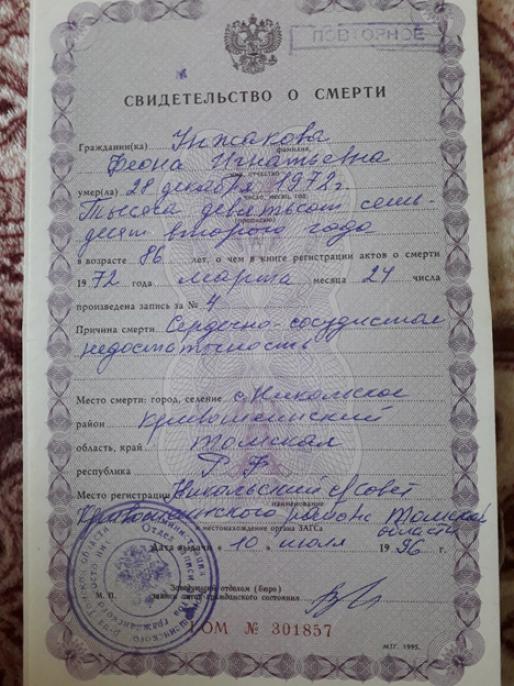 ПОВТОРНОЕ
СВИДЕТЕЛЬСТВО О СМЕРТИ
Гражданин(ка) Унжакова
фамилия,
Феона Игнатьевна
имя, отчество
умер(ла) 28 декабря 1972 г.
число, месяц, год
Тысяча девятьсот семь-
десят второго года
в возрасте 86 лет, о чем в книге регистрации актов о смерти
1972 года марта месяца 24 числа
произведена запись за № 4
Причина смерти Сердечно-сосудистая
недостаточность
Место смерти: город, селение с. Никольское
район Кривошеинский
область, край Томская
республика РФ
Место регистрации Никольский с/совет
наименование
Кривошеинского района Томской
и местонахождение органа ЗАГСа
области
Дата выдачи 10 июля 1996 г.
М. П.
Заведующий отделом (бюро)
записи актов гражданского состояния
ОМ № 301857
МТГ. 1995.